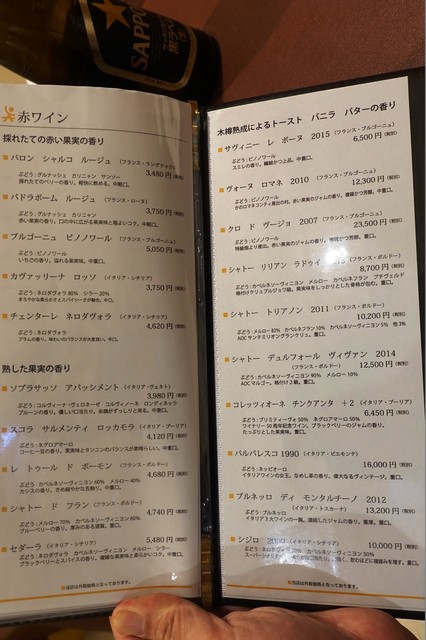 SAPPORO
赤ワイン
採れたての赤い果実の香り
バロン シャルコ ルージュ (フランス・ラングドック)
3,480円(税別)
ぶどう:グルナッシュ カリニャン サンソー
採れたてのベリーの香り。軽快に飲める。中軽口。
パドラボーム ルージュ (フランス・ローヌ)
3,750円(税別)
ぶどう:グルナッシュ カリニャン
ブルゴーニュ ピノノワール (フランス・ブルゴーニュ)
5,050円(税別)
ぶどう:ピノノワール
いちごの香り。溢れる果実味。中重口。
カヴァッリーナ ロッソ (イタリア・シチリア)
3,750円(税別)
ぶどう:ネロダヴォラ 80% シラー 20%
まろやかな柔らかさとスパイシーさが魅力。中口。
チェンターレ ネロダヴォラ (イタリア・シチリア)
4,620円(税別)
ぶどう:ネロダヴォラ
プラムの香り。味わいのバランスが大変良い。中口。
熟した果実の香り
ソプラサッソ アパッシメント (イタリア・ヴェネト)
3,980円(税別)
ぶどう:コルヴィーナ・ヴェロネーゼ コルヴィノーネ ロンディネッラ
プルーンの香り。優しい口当たり。余韻がすっしりと来る。中重口。
スコラ サルメンティ ロッカモラ (イタリア・プーリア)
4,120円(税別)
ぶどう:ネグロアマーロ
コーヒー豆の香り。果実味とタンニンのバランスが素晴らしい。中重口。
レ トゥール ド ボーモン (フランス・ボルドー)
4,680円(税別)
ぶどう:カベルネソーヴィニヨン 60% メルロー 40%
カシスの香り。きめ細やかな舌触り。中重口。
シャトー ド フラン (フランス・ボルドー)
4,740円(税別)
ぶどう:メルロー 70% カベルネソーヴィニヨン
ブルーベリーの香り。厚みのある酒質。重口。
セダーラ (イタリア・シチリア)
5,480円(税別)
ぶどう:ネロダヴォラ カベルネソーヴィニヨン メルロー シラー
ブラックベリーとスパイスの香り。複雑な果実味と柔らかいコク。中重口。
※当店は外税価格となっております。
木樽熟成によるトースト バニラ バターの香り
サヴィニー レ ボーヌ 2015 (フランス・ブルゴーニュ)
6,500円(税別)
ぶどう:ピノノワール
スミレの香り。繊細かつ上品。中重口。
ヴォーヌ ロマネ 2010 (フランス・ブルゴーニュ)
12,300円(税別)
ぶどう:ピノノワール
かのロマネコンティ産出の村。赤い果実のジャムの香り。複雑かつ芳醇。中重口。
クロ ド ヴージョ 2007 (フランス・ブルゴーニュ)
23,500円(税別)
ぶどう:ピノノワール
シャトー リリアン ラドゥイ
8,700円(税別)
ぶどう:カベルネソーヴィニヨン メルロー カベルネフラン プチヴェルド
格付けクリュブルジョワ級。果実味をしっかりとした骨格が包む。重口。
シャトー トリアノン 2011 (フランス・ボルドー)
10,200円(税別)
ぶどう:メルロー 82% カベルネフラン 10% カベルネソーヴィニヨン 5% 他 3%
AOC サンテミリオングランクリュ。重口。
シャトー デュルフォール ヴィヴァン 2014
(フランス・ボルドー) 12,500円(税別)
ぶどう:カベルネソーヴィニヨン 90% メルロー 10%
AOC マルゴー。格付け2級。重口。
コレッツィオーネ チンクアンタ +2 (イタリア・プーリア)
6,450円(税別)
ぶどう:プリミティーヴォ 50% ネグロアマーロ 50%
ワイナリー50周年記念ワイン。ブラックベリーのジャムの香り。
たっぷりとした果実味。重口。
バルバレスコ 1990 (イタリア・ピエモンテ)
16,000円(税別)
ぶどう:ネッビオーロ
イタリアワインの女王。なめし革の香り。偉大なるヴィンテージ。重口。
ブルネッロ ディ モンタルチーノ 2012
(イタリア・トスカーナ) 13,200円(税別)
ぶどう:ブルネッロ
イタリア3大ワインの一翼。濃縮したジャムの香り。重厚。重口。
シジロ (イタリア・シチリア)
10,000円(税別)
ぶどう:ネロダヴォラ カベルネソーヴィニヨン 50%
※当店は外税価格となっております。